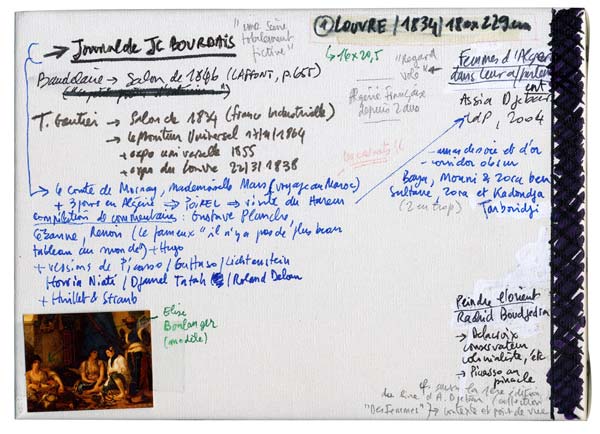 ① LOUVRE / 1834 / 180 x 229 cm
→ Journal de JC BOURDAIS
"une scène
totalement
fictive"
→ 16 x 20,5
"Regard
volé"
Algérie française
depuis 2 ans
Femmes d'Alger
dans leur appartem
ent
Assia Djebar
LdP, 2004
Baudelaire → Salon de 1846 (LAFFONT, p. 655)
T. Gautier → Salon de 1834 (France Industrielle)
→ Le Moniteur Universel
+ expo universelle 1855
+ expo du Louvre 22/3/1838
→ le comte de Mornay, Mademoiselle Mars (voyage au Maroc)
+ 3 jours en Algérie → POIREL → visite du Harem
compilation de commentaires : Gustave Planche,
Cézanne, Renoir (le fameux "il n'y a pas de plus beau
tableau au monde") + Hugo
+ versions de Picasso / Guttuso / Lichtenstein
Houria Niati / Djamel Tatah / Roland Delcou
+ Huillet & Straub
- une soie et d'or
- corridor obscur
Baya, Mouni & Zora ben
Sultane Zora et Kadondja
(2 en trop) Tarboridji
Elisa
Boulanger
(modèle)
Peindre l'Orient
Rachid Boudjedra
→ Delacroix
conservateur
colonialiste, etc
→ Picasso au
pinacle
cf. aussi la 1ère édition
du livre d'A. Djebar (collection
"Des femmes") → contexte et point de vue